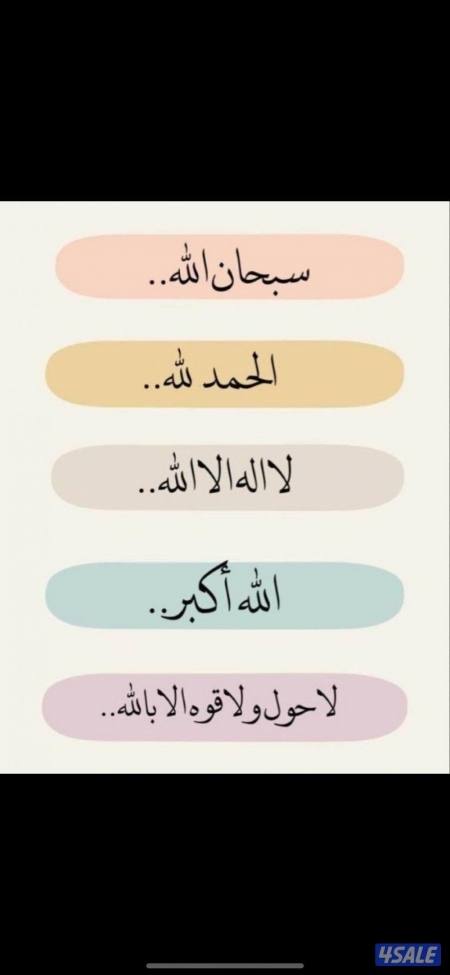 سبحان الله..
الحمد لله..
لا اله الا الله..
الله أكبر..
لا حول ولا قوه الا بالله..
4SALE